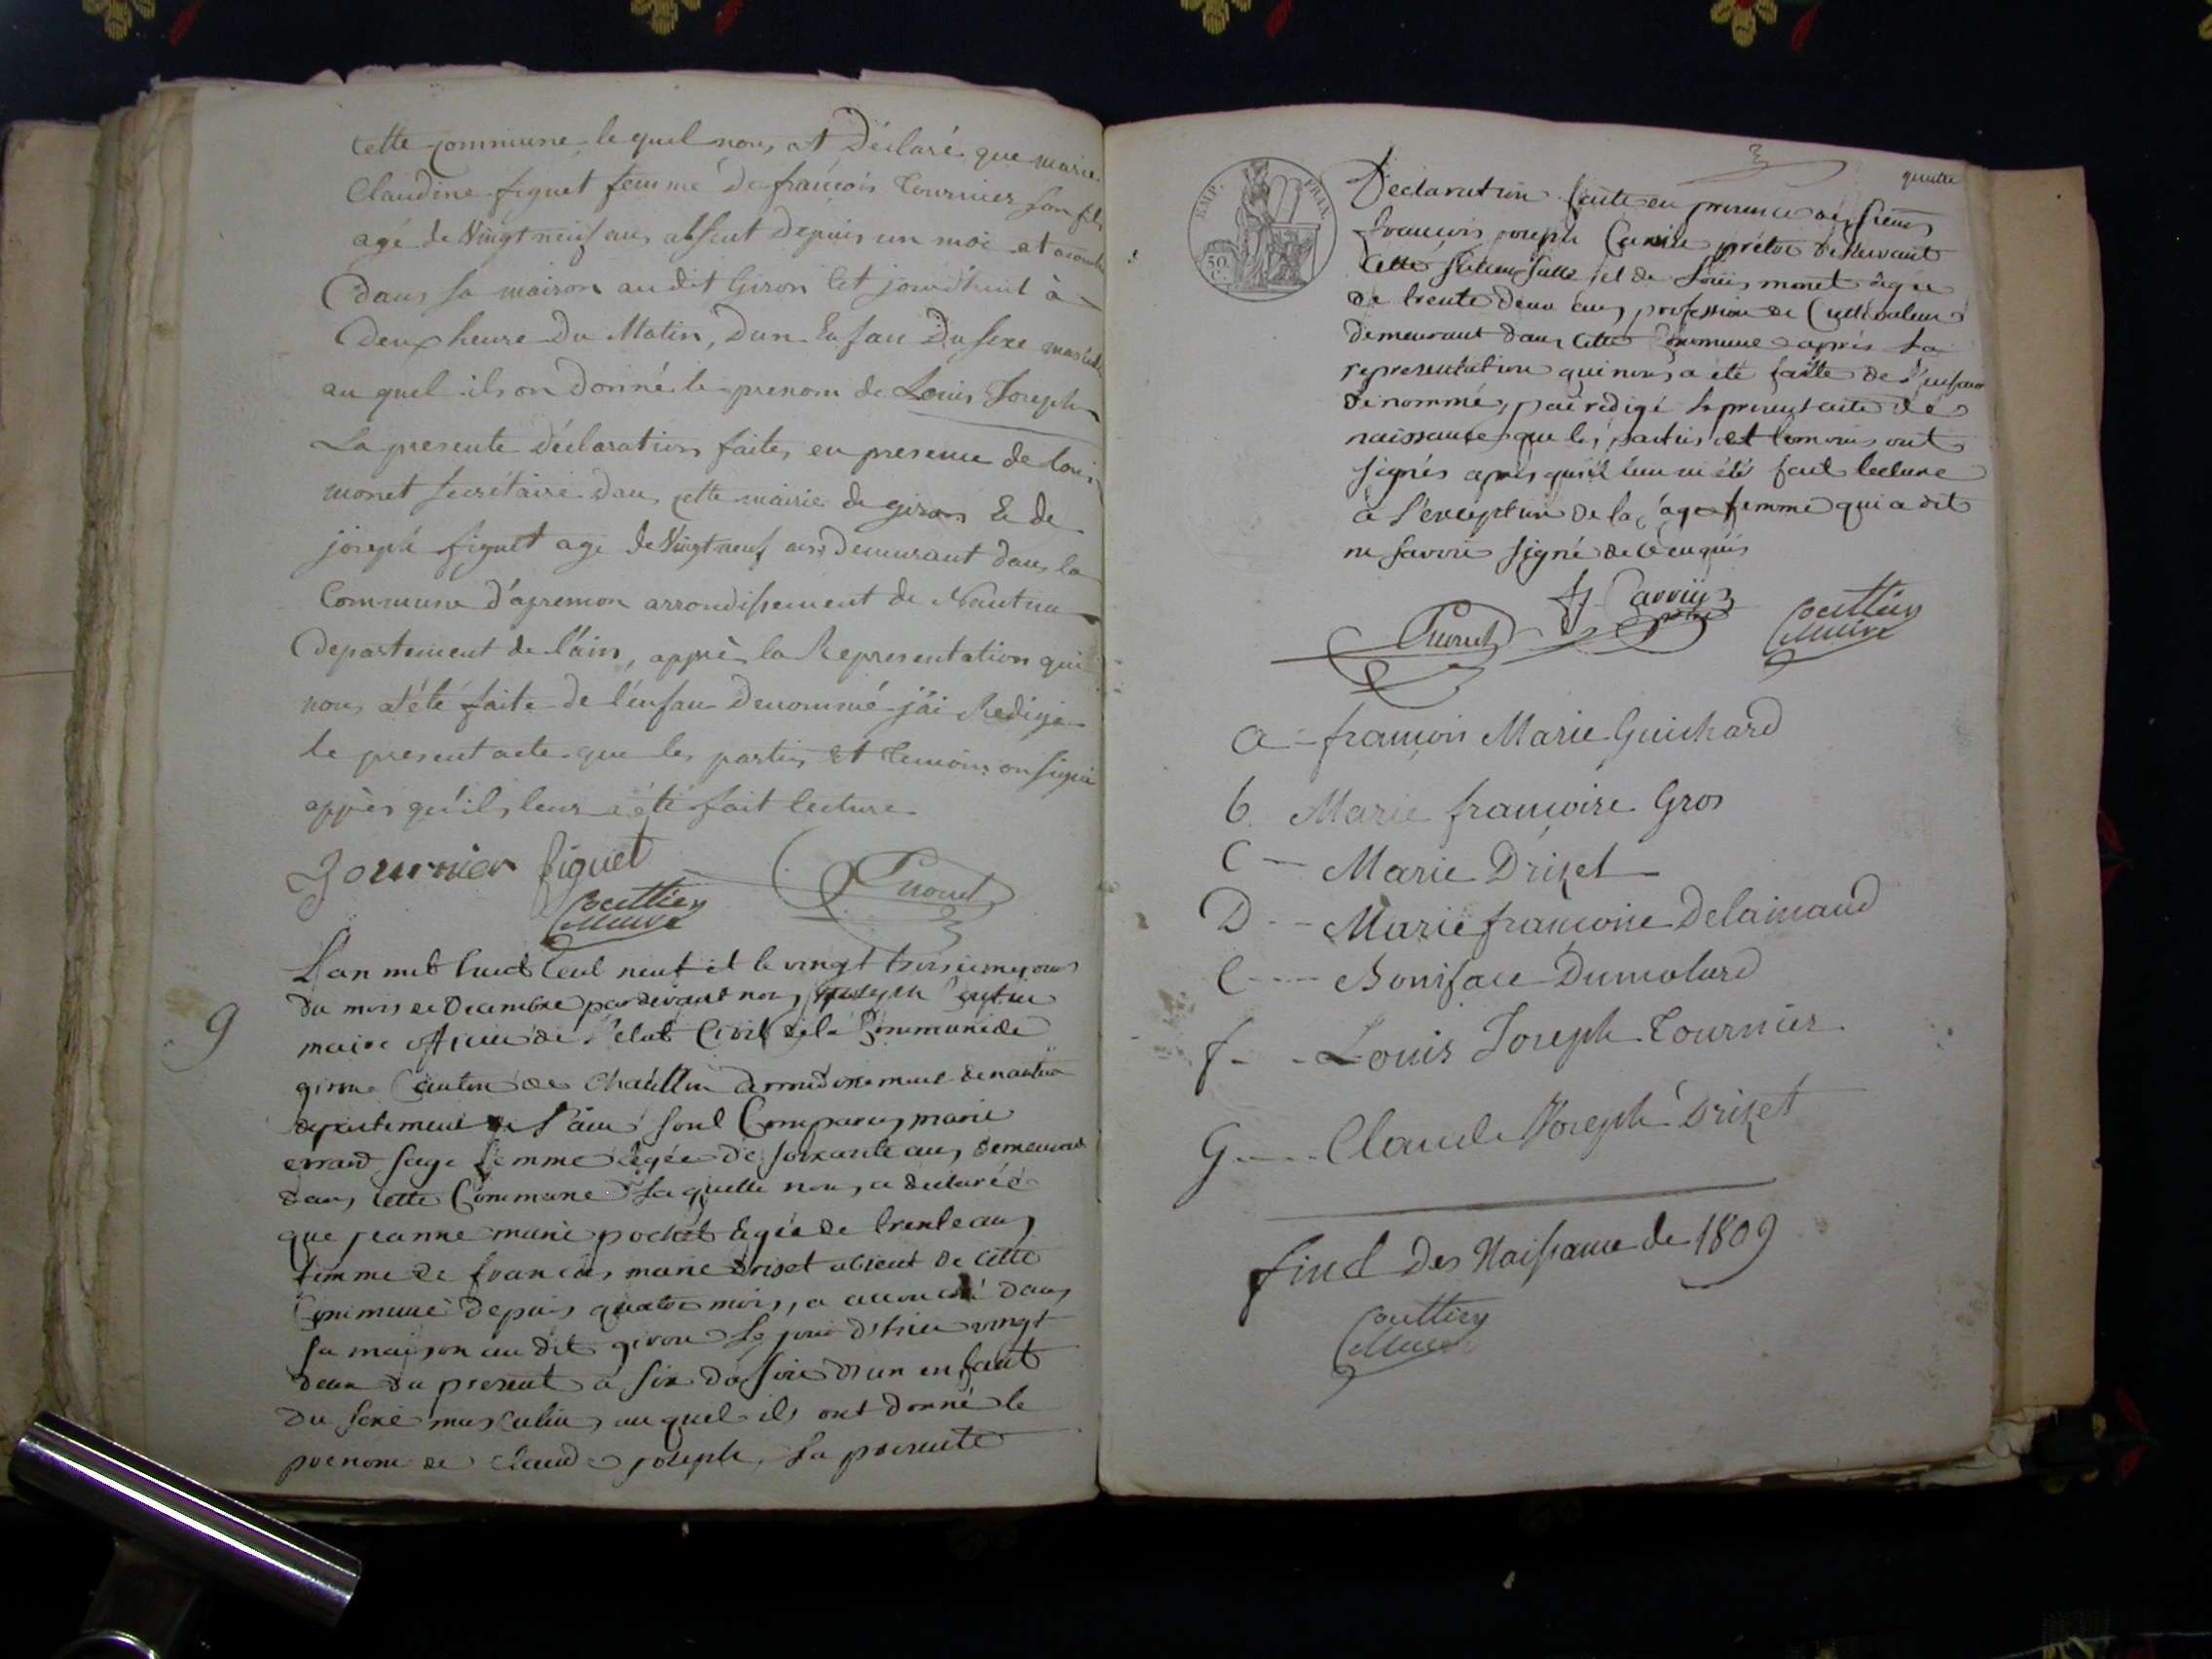 cette commune, le quel nous at Déclaré que marie
Claudine figuet femme de françois Tournier son fils
agé de Vingt neuf ans absent depuis un moi et acouché
dans sa maison au dit Giron cet jourd'huit à
Deux heure Du Matin, Dun Enfan Du sexe masculin
au quel ils on Donné le prenom de Louis Joseph
La presente déclaration faite, en presence de Louis
monet secrétaire dans cette mairie de giron & de
joseph figuet agé de Vingt neuf ans demeurant dans la
Commune d'apremon arrondissement de Nantua
Departement de l'ain, apprès la Representation qui
nous at été faite de l'enfan Denommé j'ai Redigé
le present acte que les parties et temoins on signé
apprès qu'ils leur a été fait lecture
Tournier figuet
Maire
Monet
9
L'an mil huit Cent neuf et le vingt troisieme jour
du mois de Decembre pardevant nous joseph
maire officier de l'etat Civil de la Commune de
giron Canton de Chatillon arrondissement de nantua
departement de l'ain sont Comparus marie
errard sage femme agée de soixante ans demeurant
dans cette Commune laquelle nous a declaréé
que jeanne marie pochet agée de trente ans
femme de francois marie Drizet absent de cette
Commune depuis quatre mois, a accouché dans
sa maison au dit giron le jour d'hier vingt
deux du present à six du soir d'un enfant
du sexe masculin, auquel ils ont donné le
prenom de claude joseph, la presente
quatre
EMP. FRAN.
50 C.
Declaration faite en presence des sieurs
françois joseph prêtre desservant
cette succursalle et de Louis monet agée
de trente deux ans profession de Cultivateur
demeurant dans cette Commune après la
representation qui nous a été faitte de l'enfant
denommé, j'ai redigé le present acte de
naissance que les parties et temoins ont
signés apres qu'il leur en été fait lecture
à l'exception de la sage femme qui a dit
ne savoir signé de ce enquis
Monet
prêtre
Maire
a - françois Marie Guichard
b. Marie françoise Gros
C - Marie Drizet
D - - Marie françoise Delainaud
E - - - Boniface Dumolard
f - - Louis Joseph Tournier
G - - - Claude Joseph Drizet
find Des Naissance de 1809
Maire